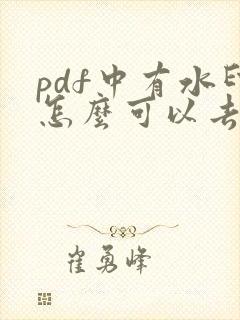 pdf中有水
怎麼可以去
崔勇峰